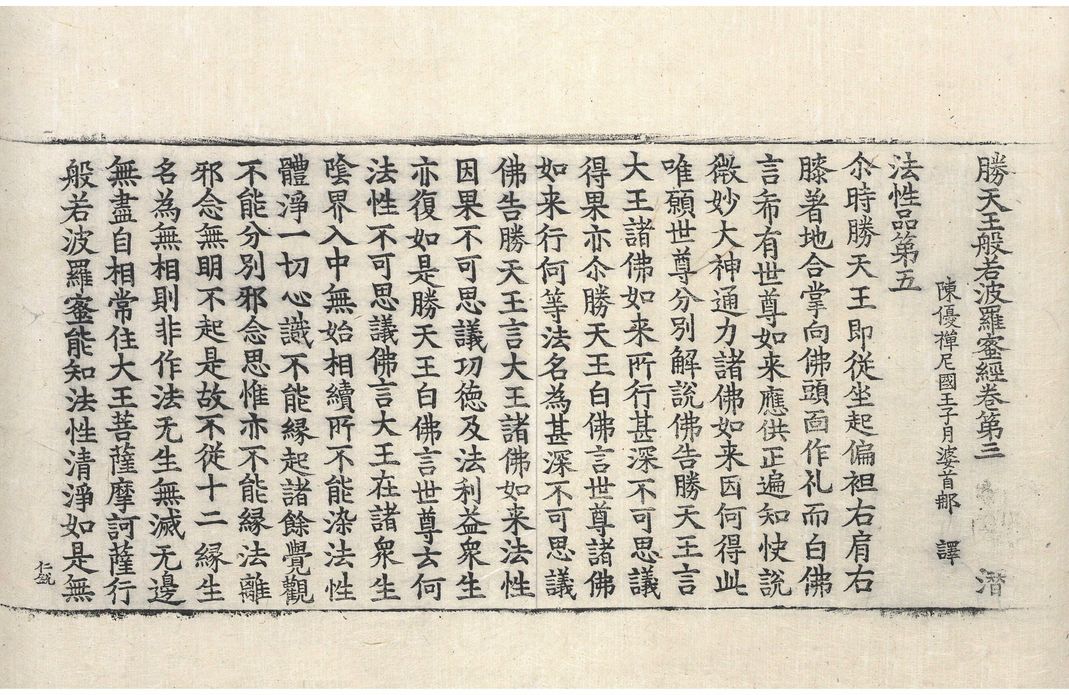 勝天王般若波羅蜜經卷第三 潛
陳優禪尼國王子月婆首那 譯
法性品第五
尒時勝天王即從坐起偏袒右肩右
膝著地合掌向佛頭面作礼而白佛
言希有世尊如来應供正遍知快說
微妙大神通力諸佛如来因何得此
唯願世尊分別解說佛告勝天王言
大王諸佛如来所行甚深不可思議
得果亦尒勝天王白佛言世尊諸佛
如来行何等法名為甚深不可思議
佛告勝天王言大王諸佛如来法性
因果不可思議功徳及法利益衆生
亦復如是勝天王白佛言世尊云何
法性不可思議佛言大王在諸衆生
陰界入中無始相續所不能染法性
體淨一切心識不能緣起諸餘覺觀
不能分別邪念思惟亦不能緣法離
邪念無明不起是故不從十二緣生
名為無相則非作法无生無滅无邊
無盡自相常住大王菩薩摩訶薩行
般若波羅蜜能知法性清淨如是無